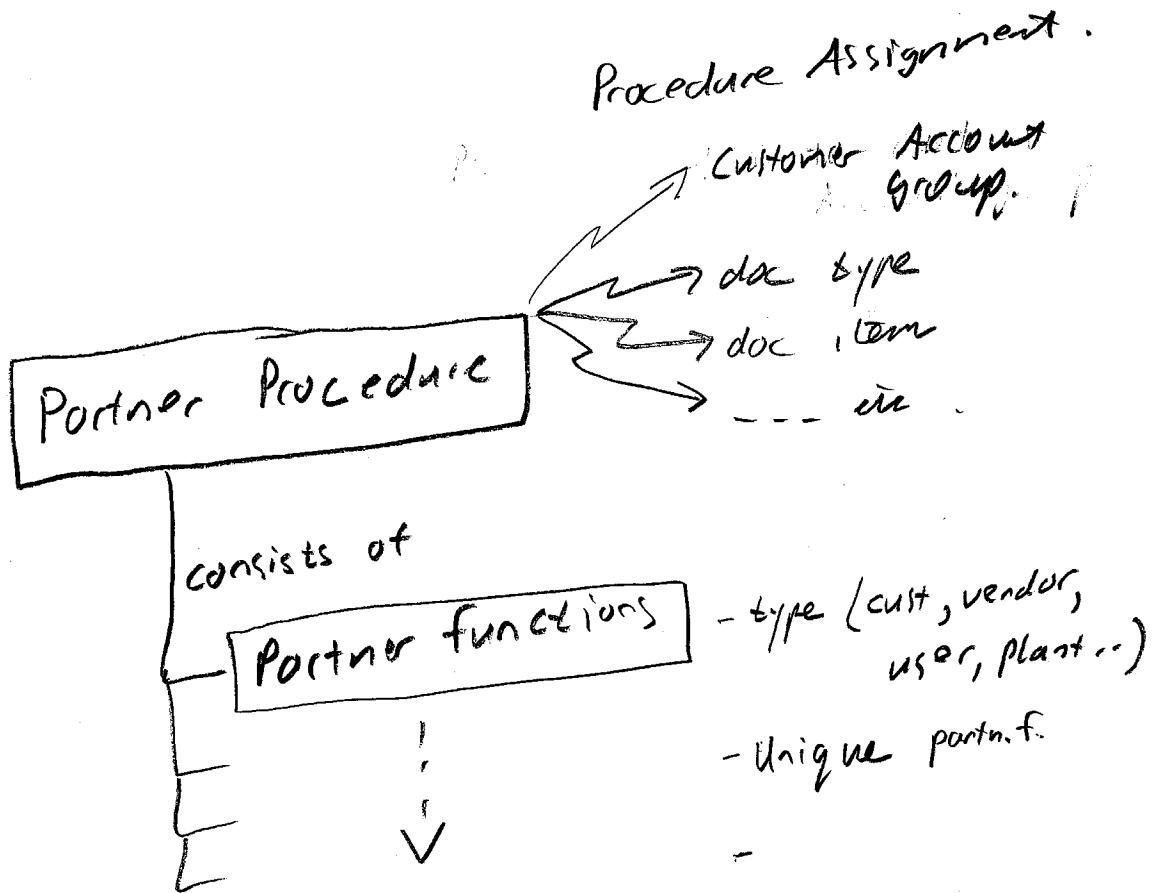 Procedure Assignment.
Customer Account
group.
doc type
doc item
--- etc.
Partner Procedure
consists of
Partner functions
- type (cust, vendor,
user, plant..)
- Unique partn.f.
-